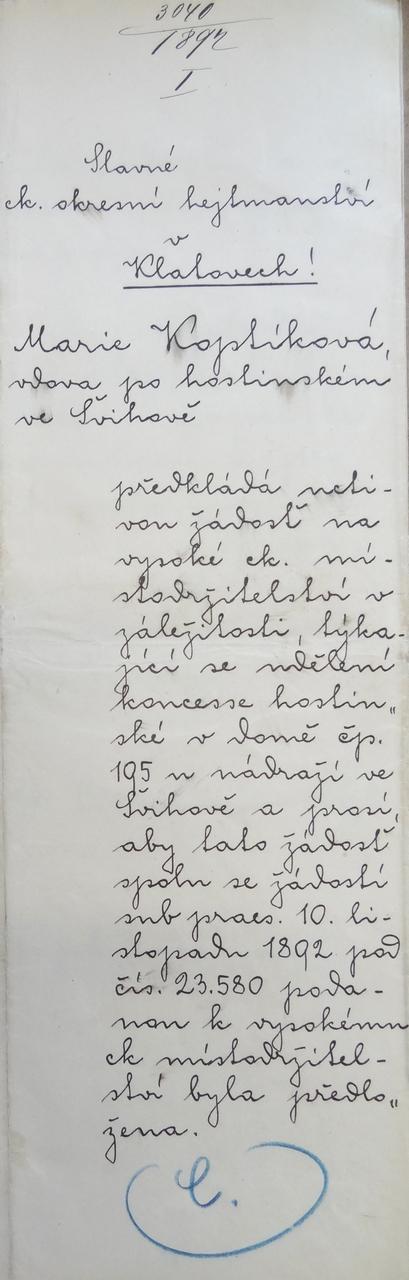 3040
1892
I
Slavné
ck. okresní hejtmanství
v
Klatovech!
Marie Koptíková,
vdova po hostinském
ve Švihově
předkládá ucti-
vou žádosť na
vysoké ck. mí-
stodržitelství v
záležitosti, týka-
jící se udělení
koncesse hostin„
ské v domě čp.
195 u nádraží ve
Švihově a prosí,
aby tato žádosť
spolu se žádostí
sub praes. 10. li-
stopadu 1892 pod
čís. 23.580 poda-
nou k vysokému
ck místodržitel-
ství byla předlo„
žena.
C.